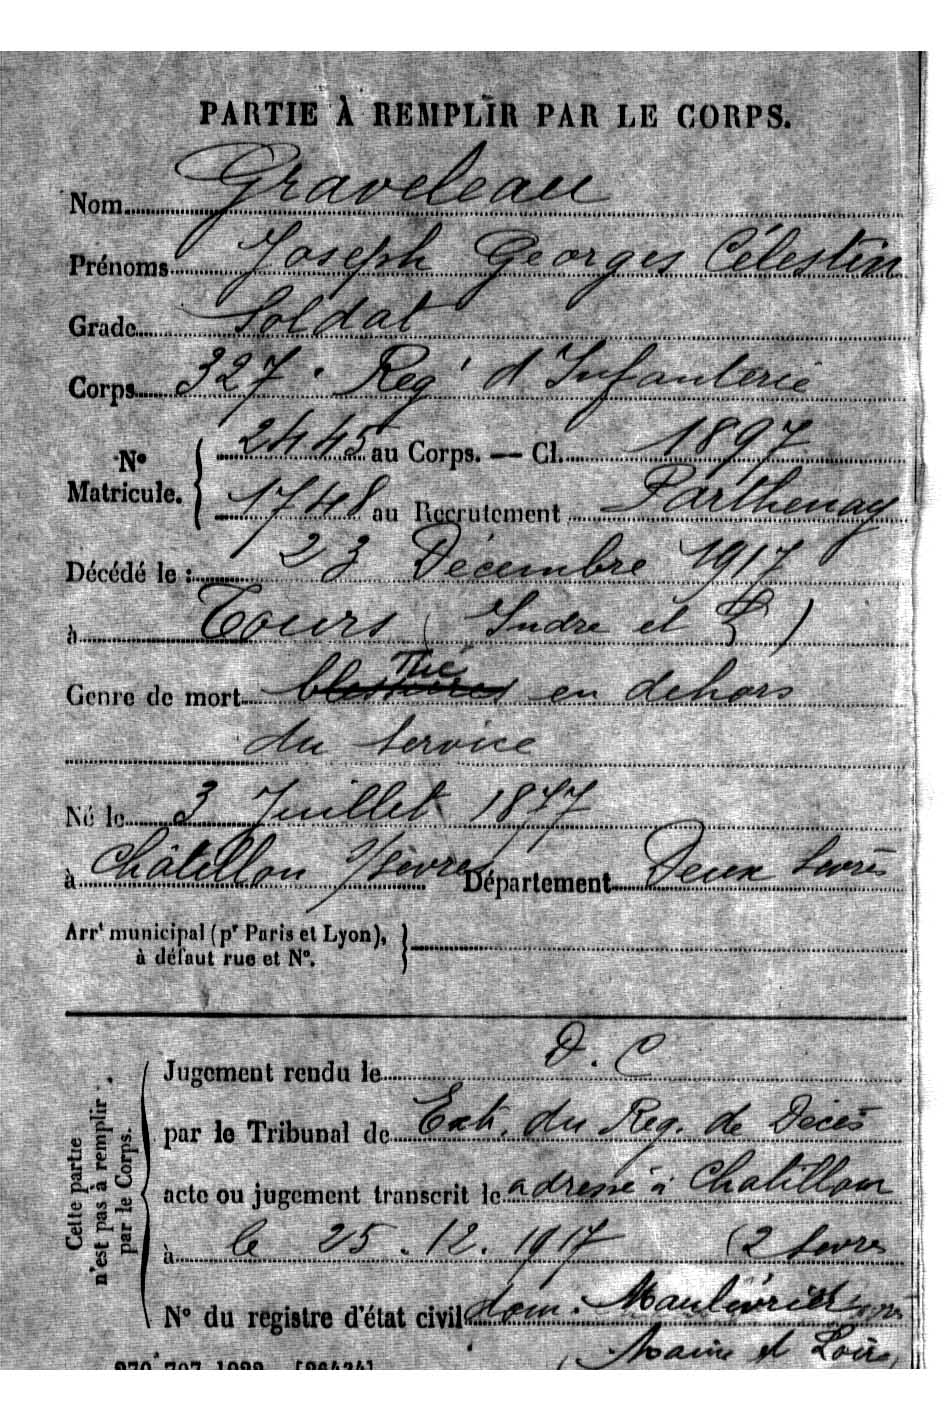 PARTIE À REMPLIR PAR LE CORPS.
Nom Graveleau
Prénoms Joseph Georges Célestin
Grade Soldat
Corps 327e Regt d'Infanterie
No Matricule. { 2445 au Corps. — Cl. 1897
1748 au Recrutement Parthenay
Décédé le : 23 Décembre 1917
à Tours (Indre et L)
Genre de mort Tué en dehors
du service
Né le 3 Juillet 1877
à Châtillon s/Sèvres Département Deux Sèvres
Arrt municipal (pr Paris et Lyon), }
à défaut rue et No.
Cette partie n'est pas à remplir par le Corps.
Jugement rendu le D. C
par le Tribunal de Ext. du Reg. de Décès
acte ou jugement transcrit le adressé à Chatillon
à le 25.12.1917 (2 Sevres
No du registre d'état civil dom. Maulévrier
(Maine et Loire)